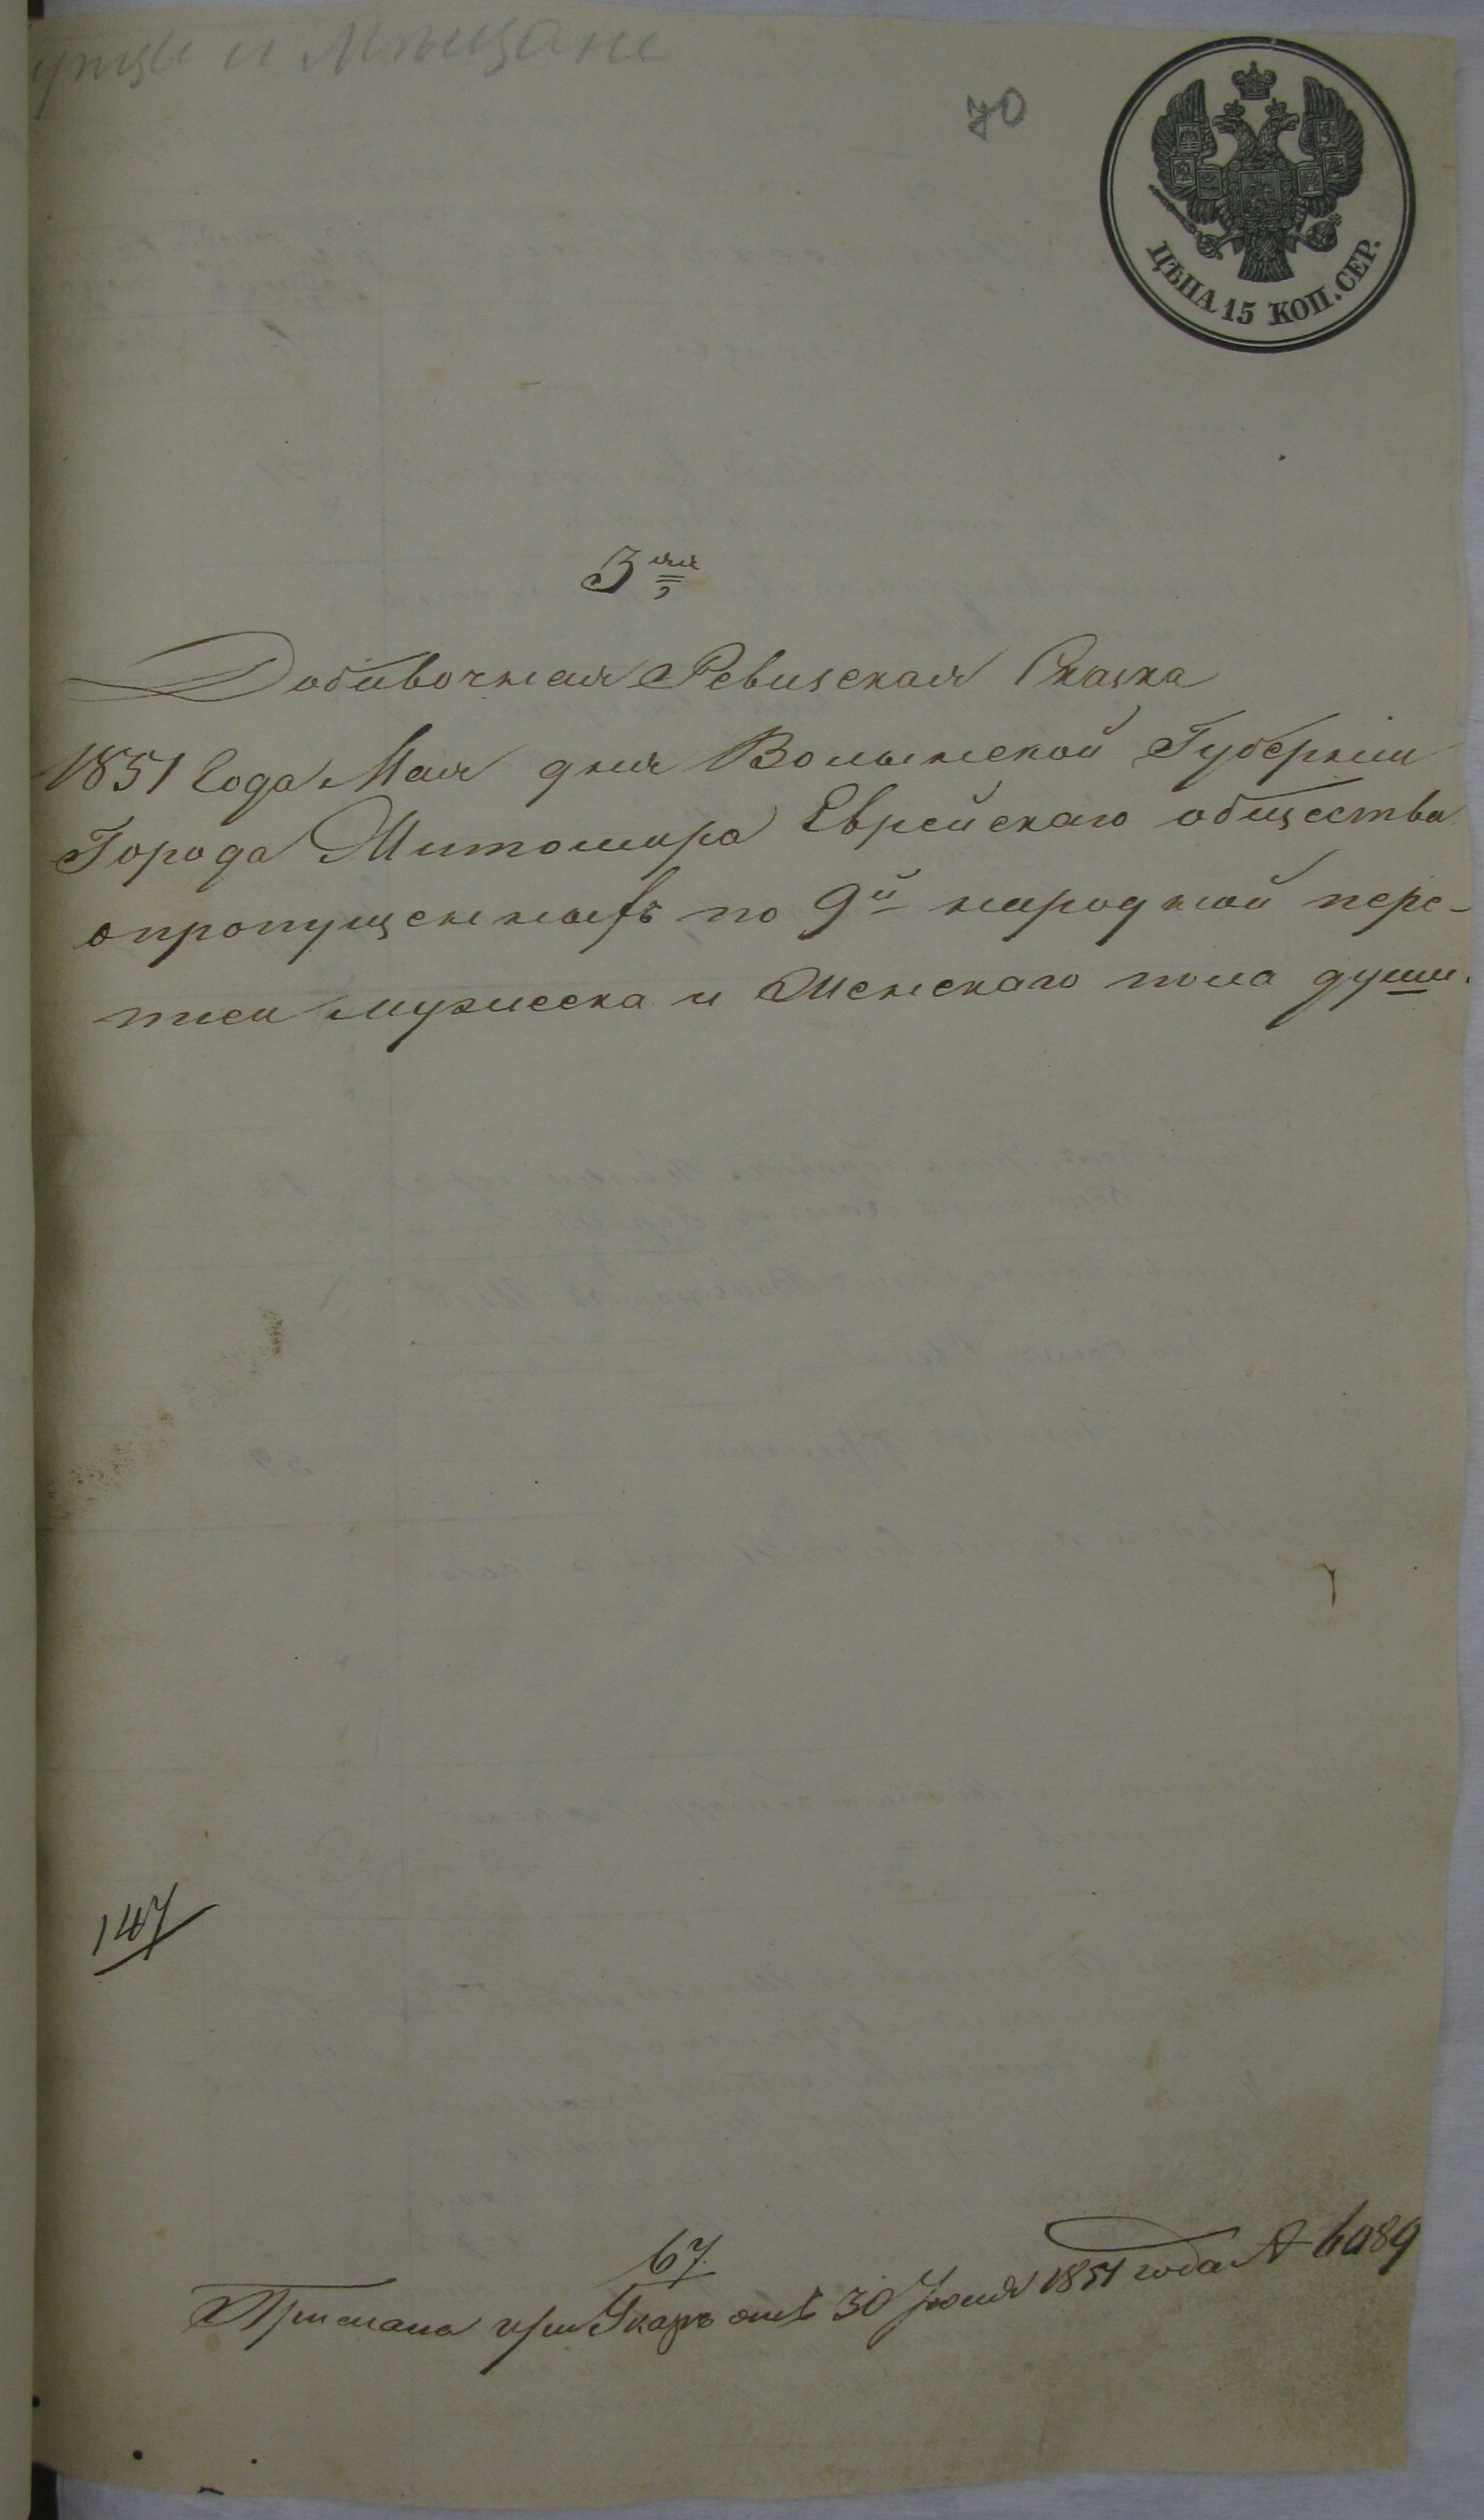 и Мѣщане
70
ЦѢНА 15 КОП. СЕР.
3яя
Добавочная Ревизская Сказка
1851 Года Мая дня Волынской Губернии
Города Житомира Еврейскаго общества
о пропущенныхъ по 9й народной пере-
писи мужеска и Женскаго пола души.
147
67.
Прислана при Указе отъ 30 Іюня 1851 года №